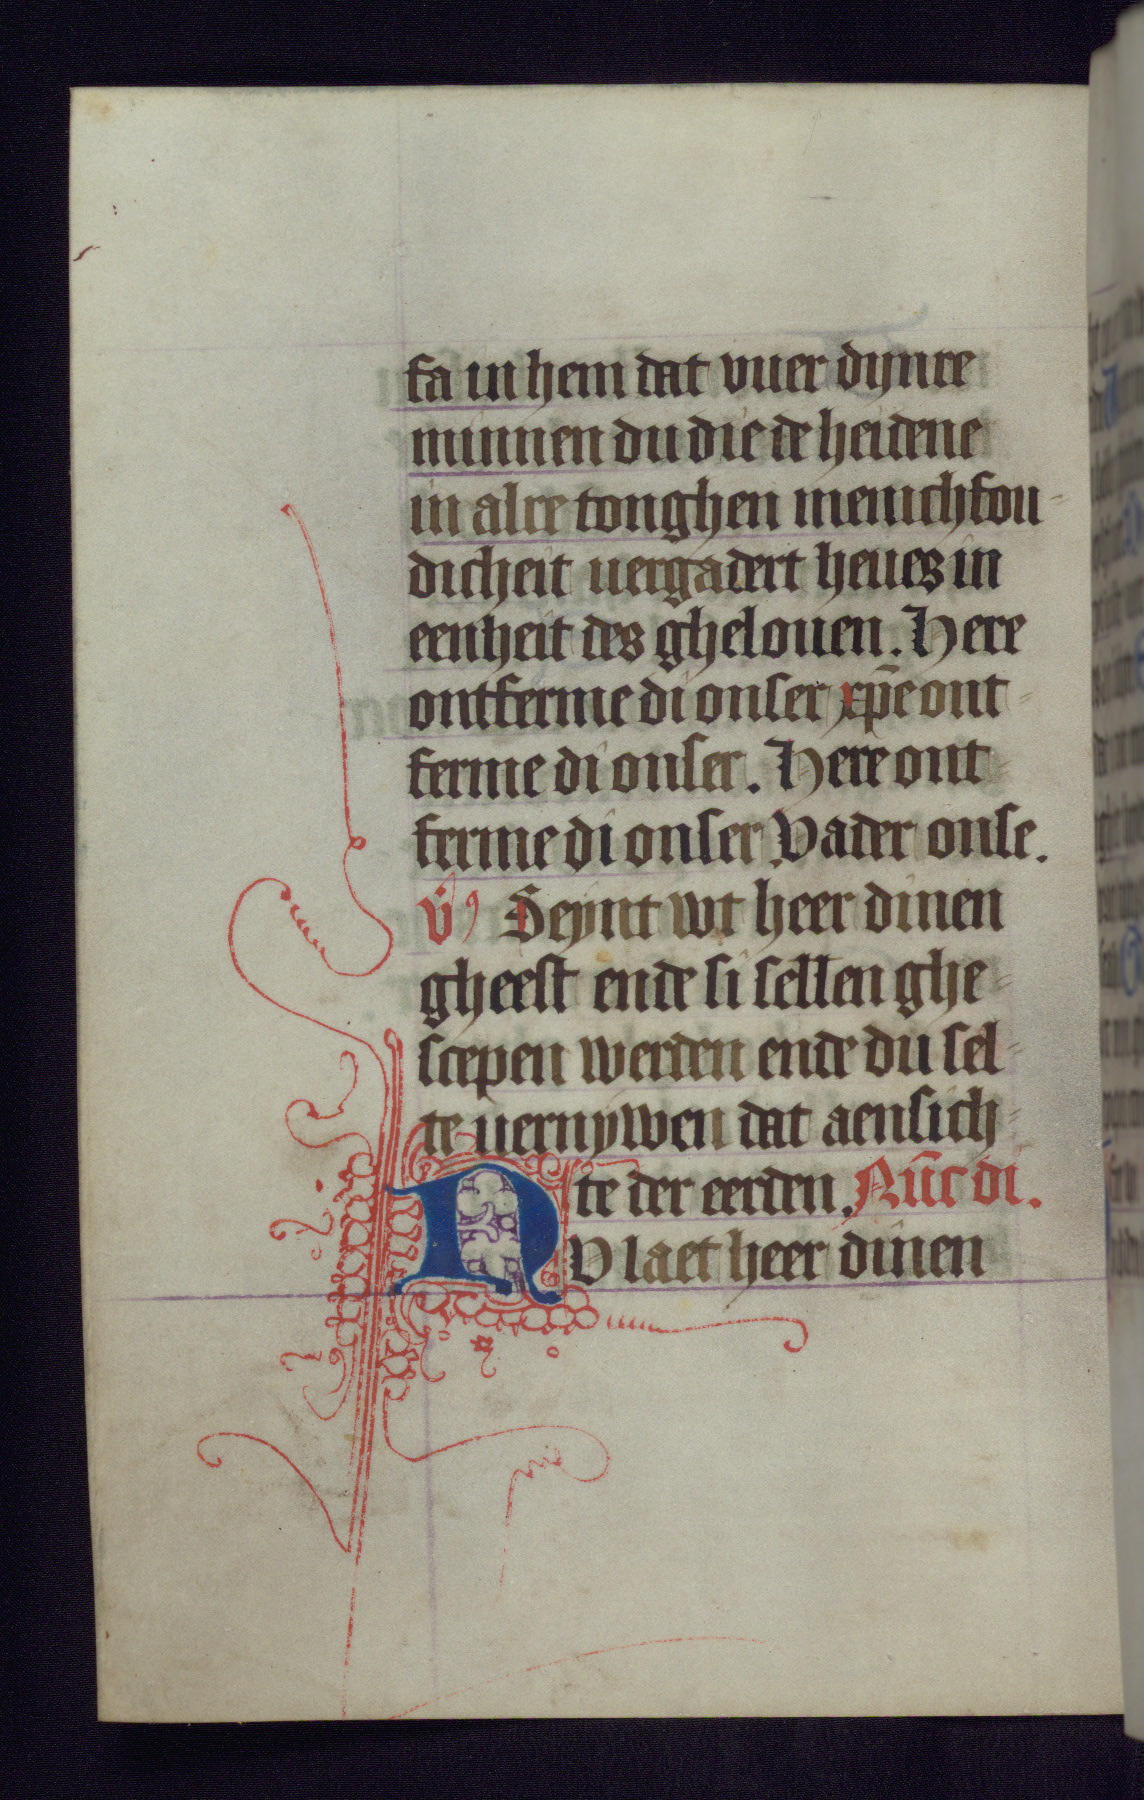 fa in hem dat vuer dynre
minnen du die de heidene
in alre tonghen menichfou
dicheit uergadert heues in
eenheit des ghelouen. Here
ontferme di onser xp̄e ont
ferme di onser. Here ont
ferme di onser Vader onse.
V̊ Seynt wt heer dinen
gheest ende si sellen ghe
scepen werden ende du sel
te uernywen dat aensich
te der eerden. Nūc di.
NU laet heer dinen